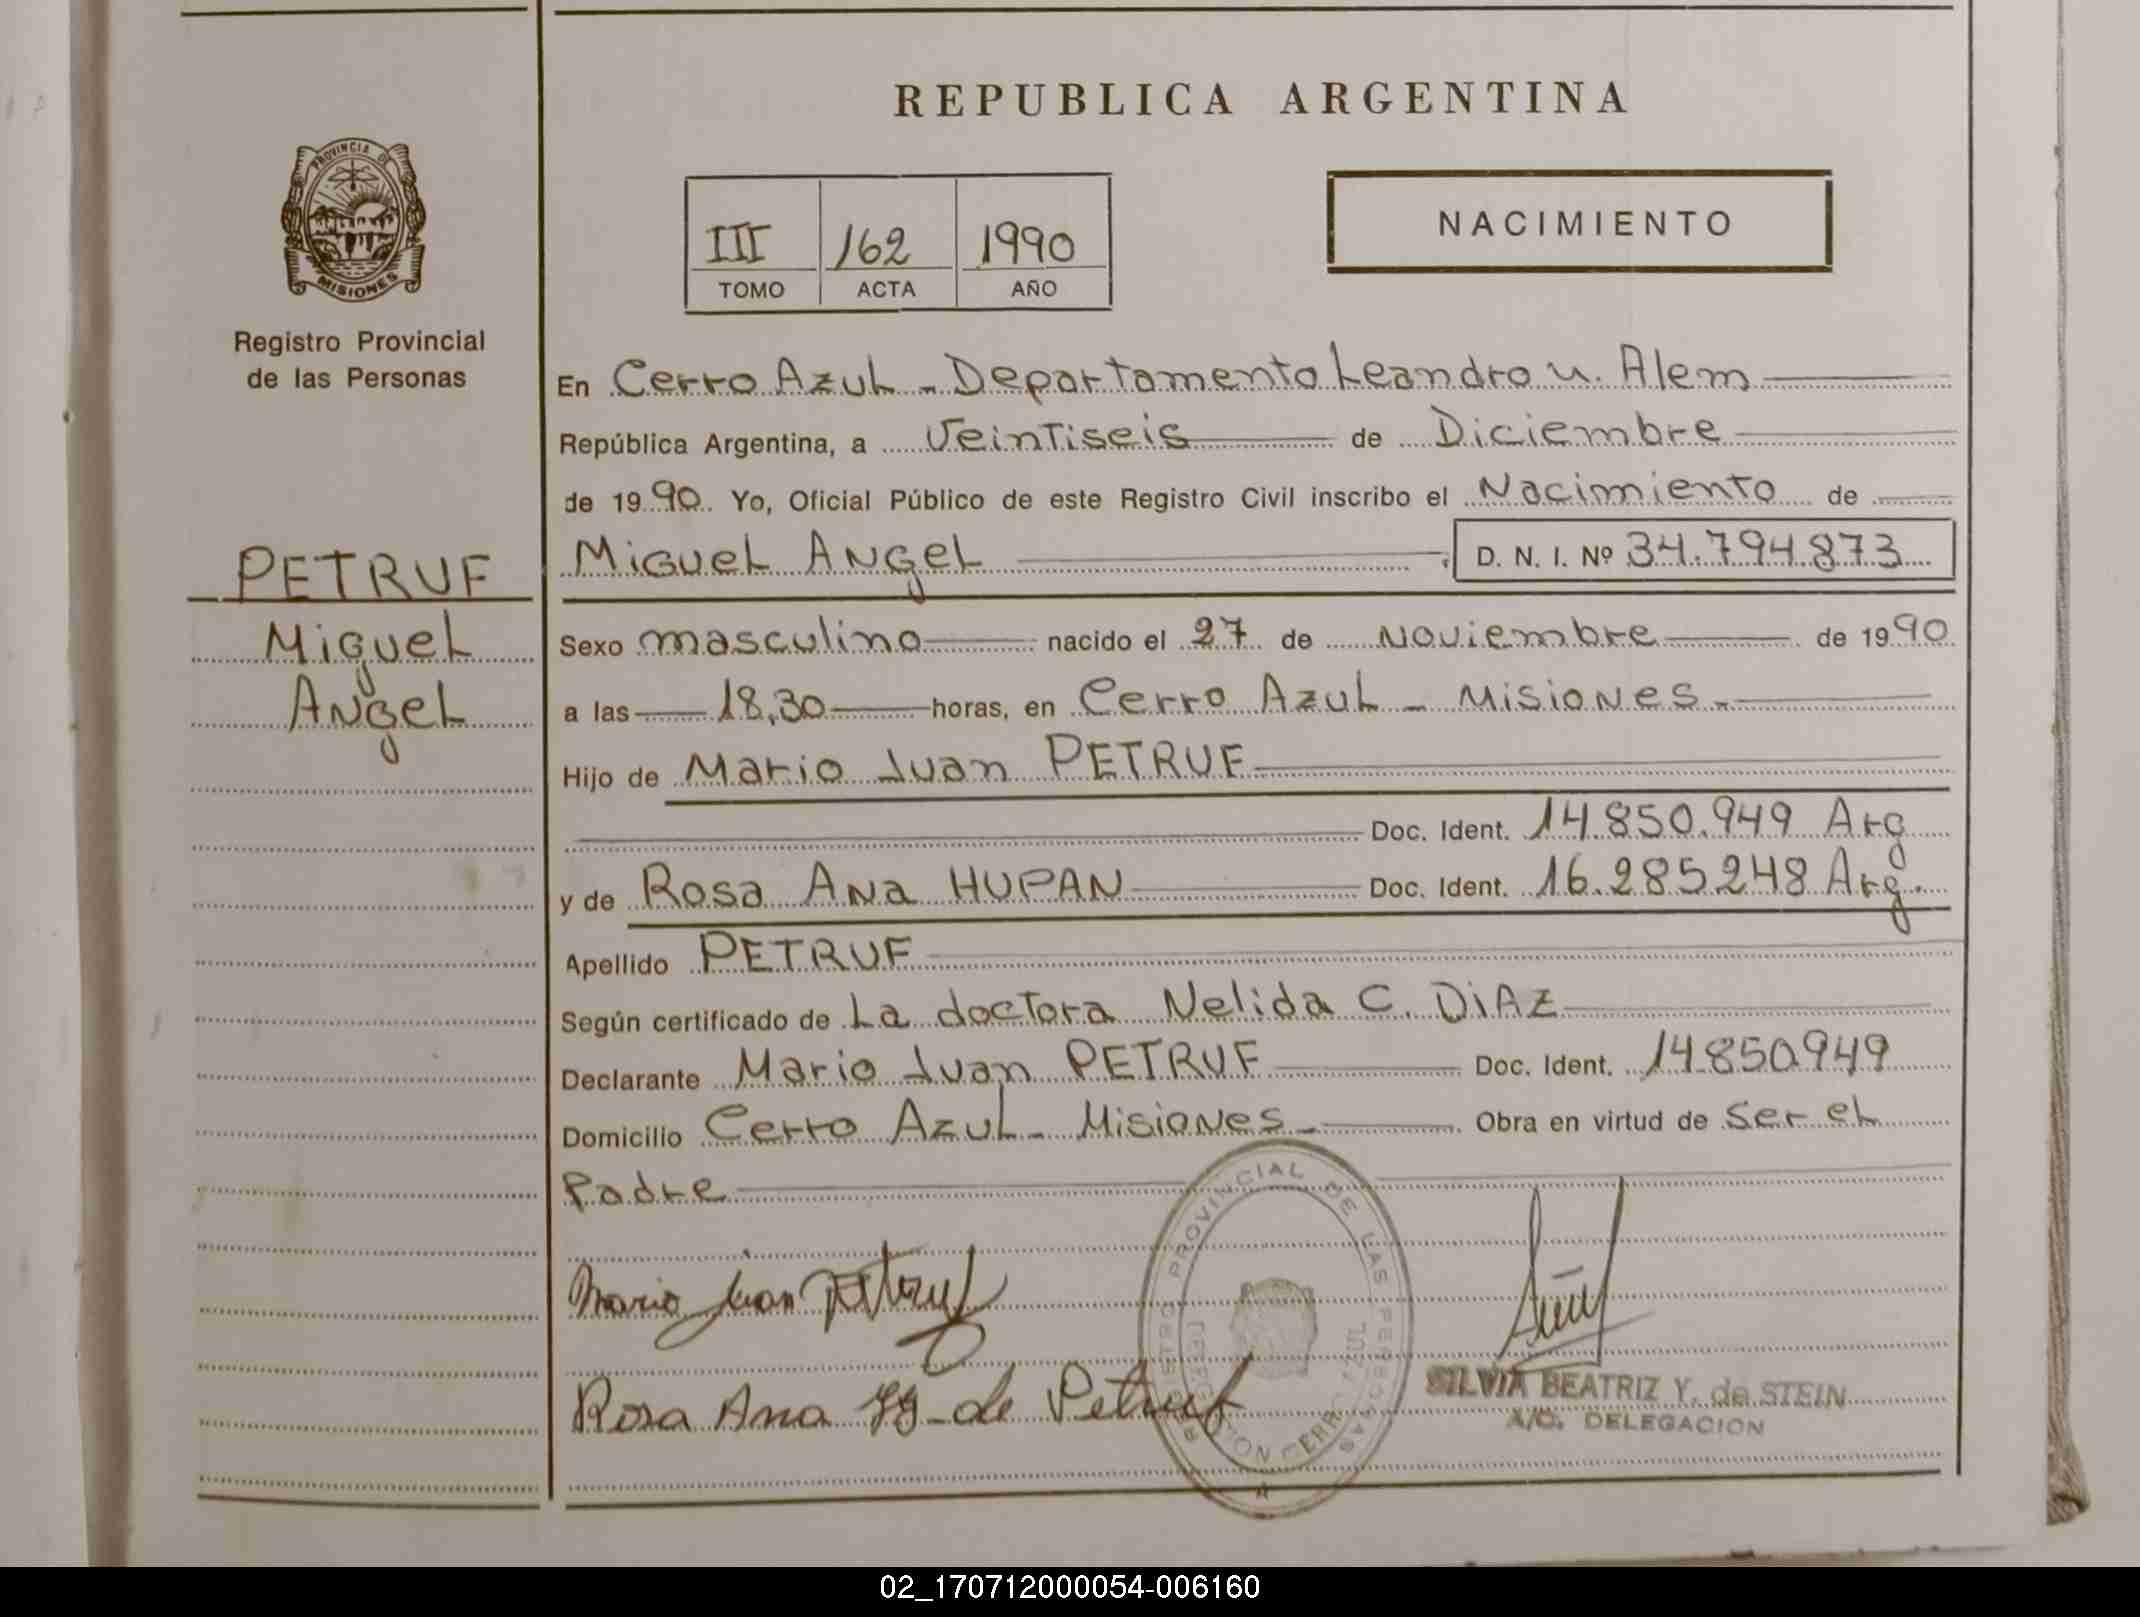 REPUBLICA ARGENTINA
PROVINCIA DE
MISIONES
Registro Provincial
de las Personas
III 162 1990
TOMO ACTA AÑO
NACIMIENTO
En Cerro Azul - Departamento Leandro N. Alem
República Argentina, a Veintiseis de Diciembre
de 1990. Yo, Oficial Público de este Registro Civil inscribo el Nacimiento de
Miguel Angel D. N. I. Nº 34.794.873
PETRUF
Miguel
Angel
Sexo masculino nacido el 27 de Noviembre de 1990
a las 18,30 horas, en Cerro Azul - Misiones.-
Hijo de Mario Juan PETRUF
Doc. Ident. 14.850.949 Arg
y de Rosa Ana HUPAN Doc. Ident. 16.285248 Arg.
Apellido PETRUF
Según certificado de La doctora Nelida C. DIAZ
Declarante Mario Juan PETRUF Doc. Ident. 14850949
Domicilio Cerro Azul - Misiones - Obra en virtud de ser el
Padre
REGISTRO PROVINCIAL DE LAS PERSONAS
CERRO AZUL
Mario Juan Petruf
Rosa Ana H. de Petruf
SILVIA BEATRIZ Y. de STEIN
A/C. DELEGACION
02_170712000054-006160